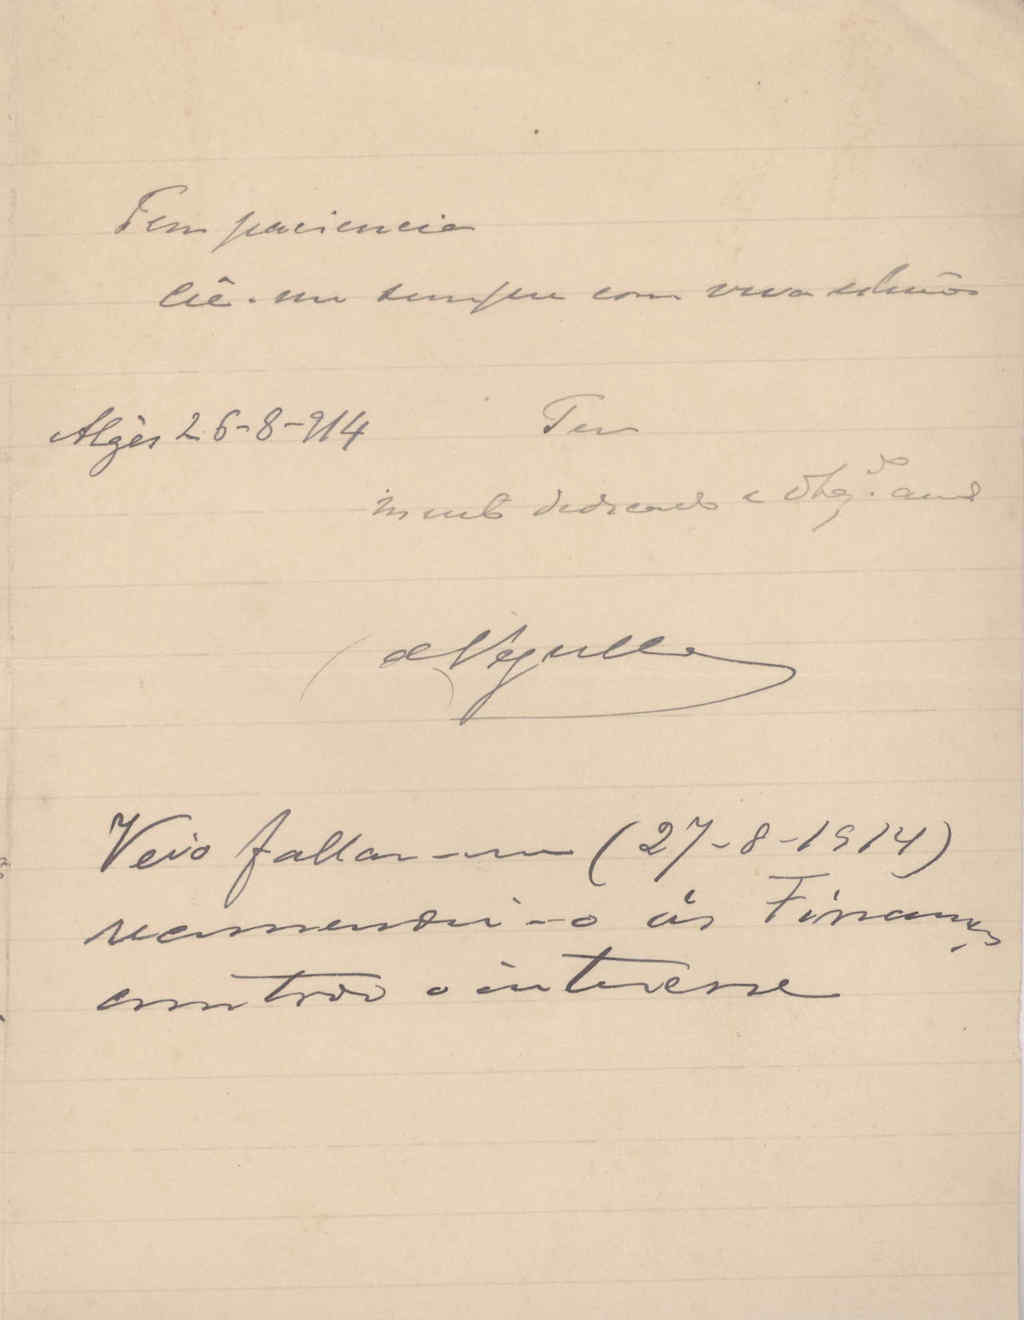 Tem paciencia
Crê-me sempre com viva
Algés 26-8-914
Teu
muito dedicado e obg.do am.o
Veio fallar-me (27-8-1914)
recomendei-o ás Finanças
com todo o interesse